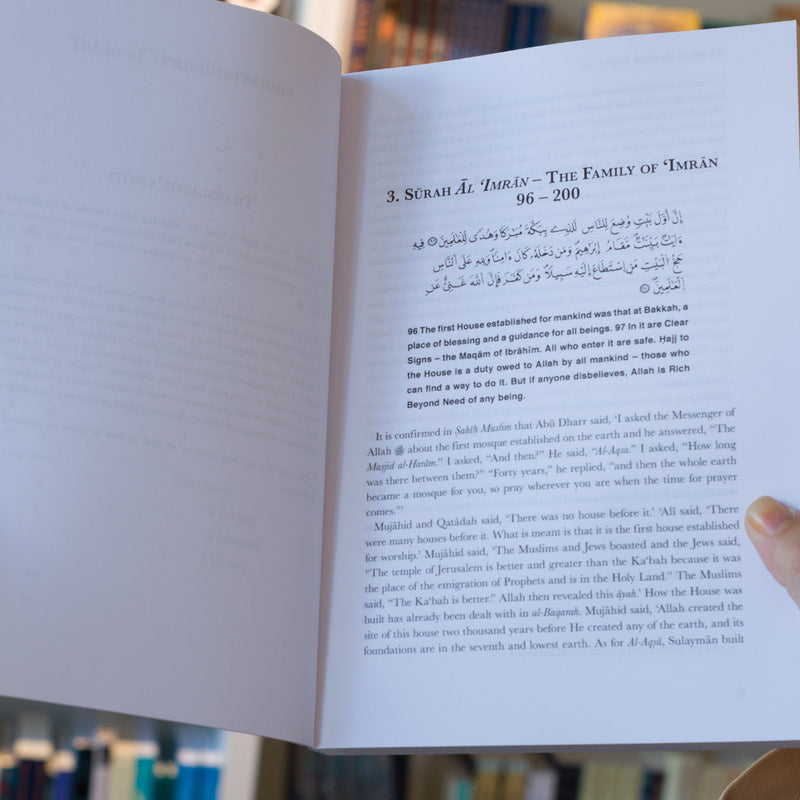 3. SŪRAH ĀL ‘IMRĀN – THE FAMILY OF ‘IMRĀN
96 – 200
إِنَّ أَوَّلَ بَيْتٍ وُضِعَ لِلنَّاسِ لَلَّذِے بِبَكَّةَ مُبَٰرَكاٗ وَهُدىٗ لِّلْعَٰلَمِينَ ٩٦ فِيهِ
ءَايَٰتُۢ بَيِّنَٰتٞ مَّقَامُ إِبْرَٰهِيمَۖ وَمَن دَخَلَهُۥ كَانَ ءَامِناٗۖ وَلِلهِ عَلَى اَلنَّاسِ
حَجُّ اُلْبَيْتِ مَنِ اِسْتَطَاعَ إِلَيْهِ سَبِيلاٗۖ وَمَن كَفَرَ فَإِنَّ اَللَّهَ غَنِيٌّ عَنِ
اِلْعَٰلَمِينَۖ ٩٧
96 The first House established for mankind was that at Bakkah, a
place of blessing and a guidance for all beings. 97 In it are Clear
Signs – the Maqām of Ibrāhīm. All who enter it are safe. Ḥajj to
the House is a duty owed to Allah by all mankind – those who
can find a way to do it. But if anyone disbelieves, Allah is Rich
Beyond Need of any being.
It is confirmed in Ṣaḥīḥ Muslim that Abū Dharr said, ‘I asked the Messenger of
Allah ﷺ about the first mosque established on the earth and he answered, “The
Masjid al-Ḥarām.” I asked, “And then?” He said, “Al-Aqsa.” I asked, “How long
was there between them?” “Forty years,” he replied, “and then the whole earth
became a mosque for you, so pray wherever you are when the time for prayer
comes.”’
Mujāhid and Qatādah said, ‘There was no house before it.’ ‘Alī said, ‘There
were many houses before it. What is meant is that it is the first house established
for worship.’ Mujāhid said, ‘The Muslims and Jews boasted and the Jews said,
“The temple of Jerusalem is better and greater than the Ka‘bah because it was
the place of the emigration of Prophets and is in the Holy Land.” The Muslims
said, “The Ka‘bah is better.” Allah then revealed this āyah.’ How the House was
built has already been dealt with in al-Baqarah. Mujāhid said, ‘Allah created the
site of this house two thousand years before He created any of the earth, and its
foundations are in the seventh and lowest earth. As for Al-Aqṣā, Sulaymān built